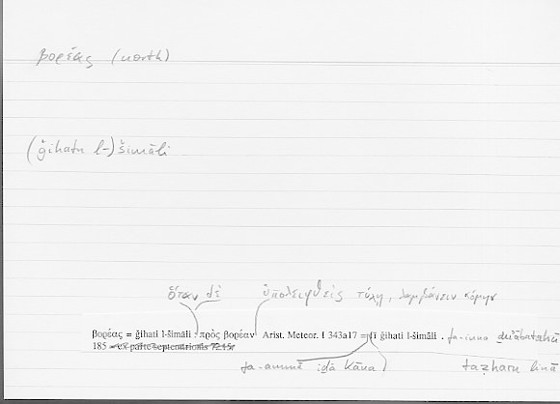 βορέας (north)
(ǧihatu l-) šimāli
ὅταν δὲ ὑπολειφθεὶς τύχῃ, λαμβάνειν κόμην
βορέας = ǧihati l-šimāli : πρὸς βορέαν Arist. Meteor. I 343a17 = fī ǧihati l-šimāli . fa-inna
185 ex parte septentrionis 72.15r
fa-ammā iḏā kāna taẓharu lanā